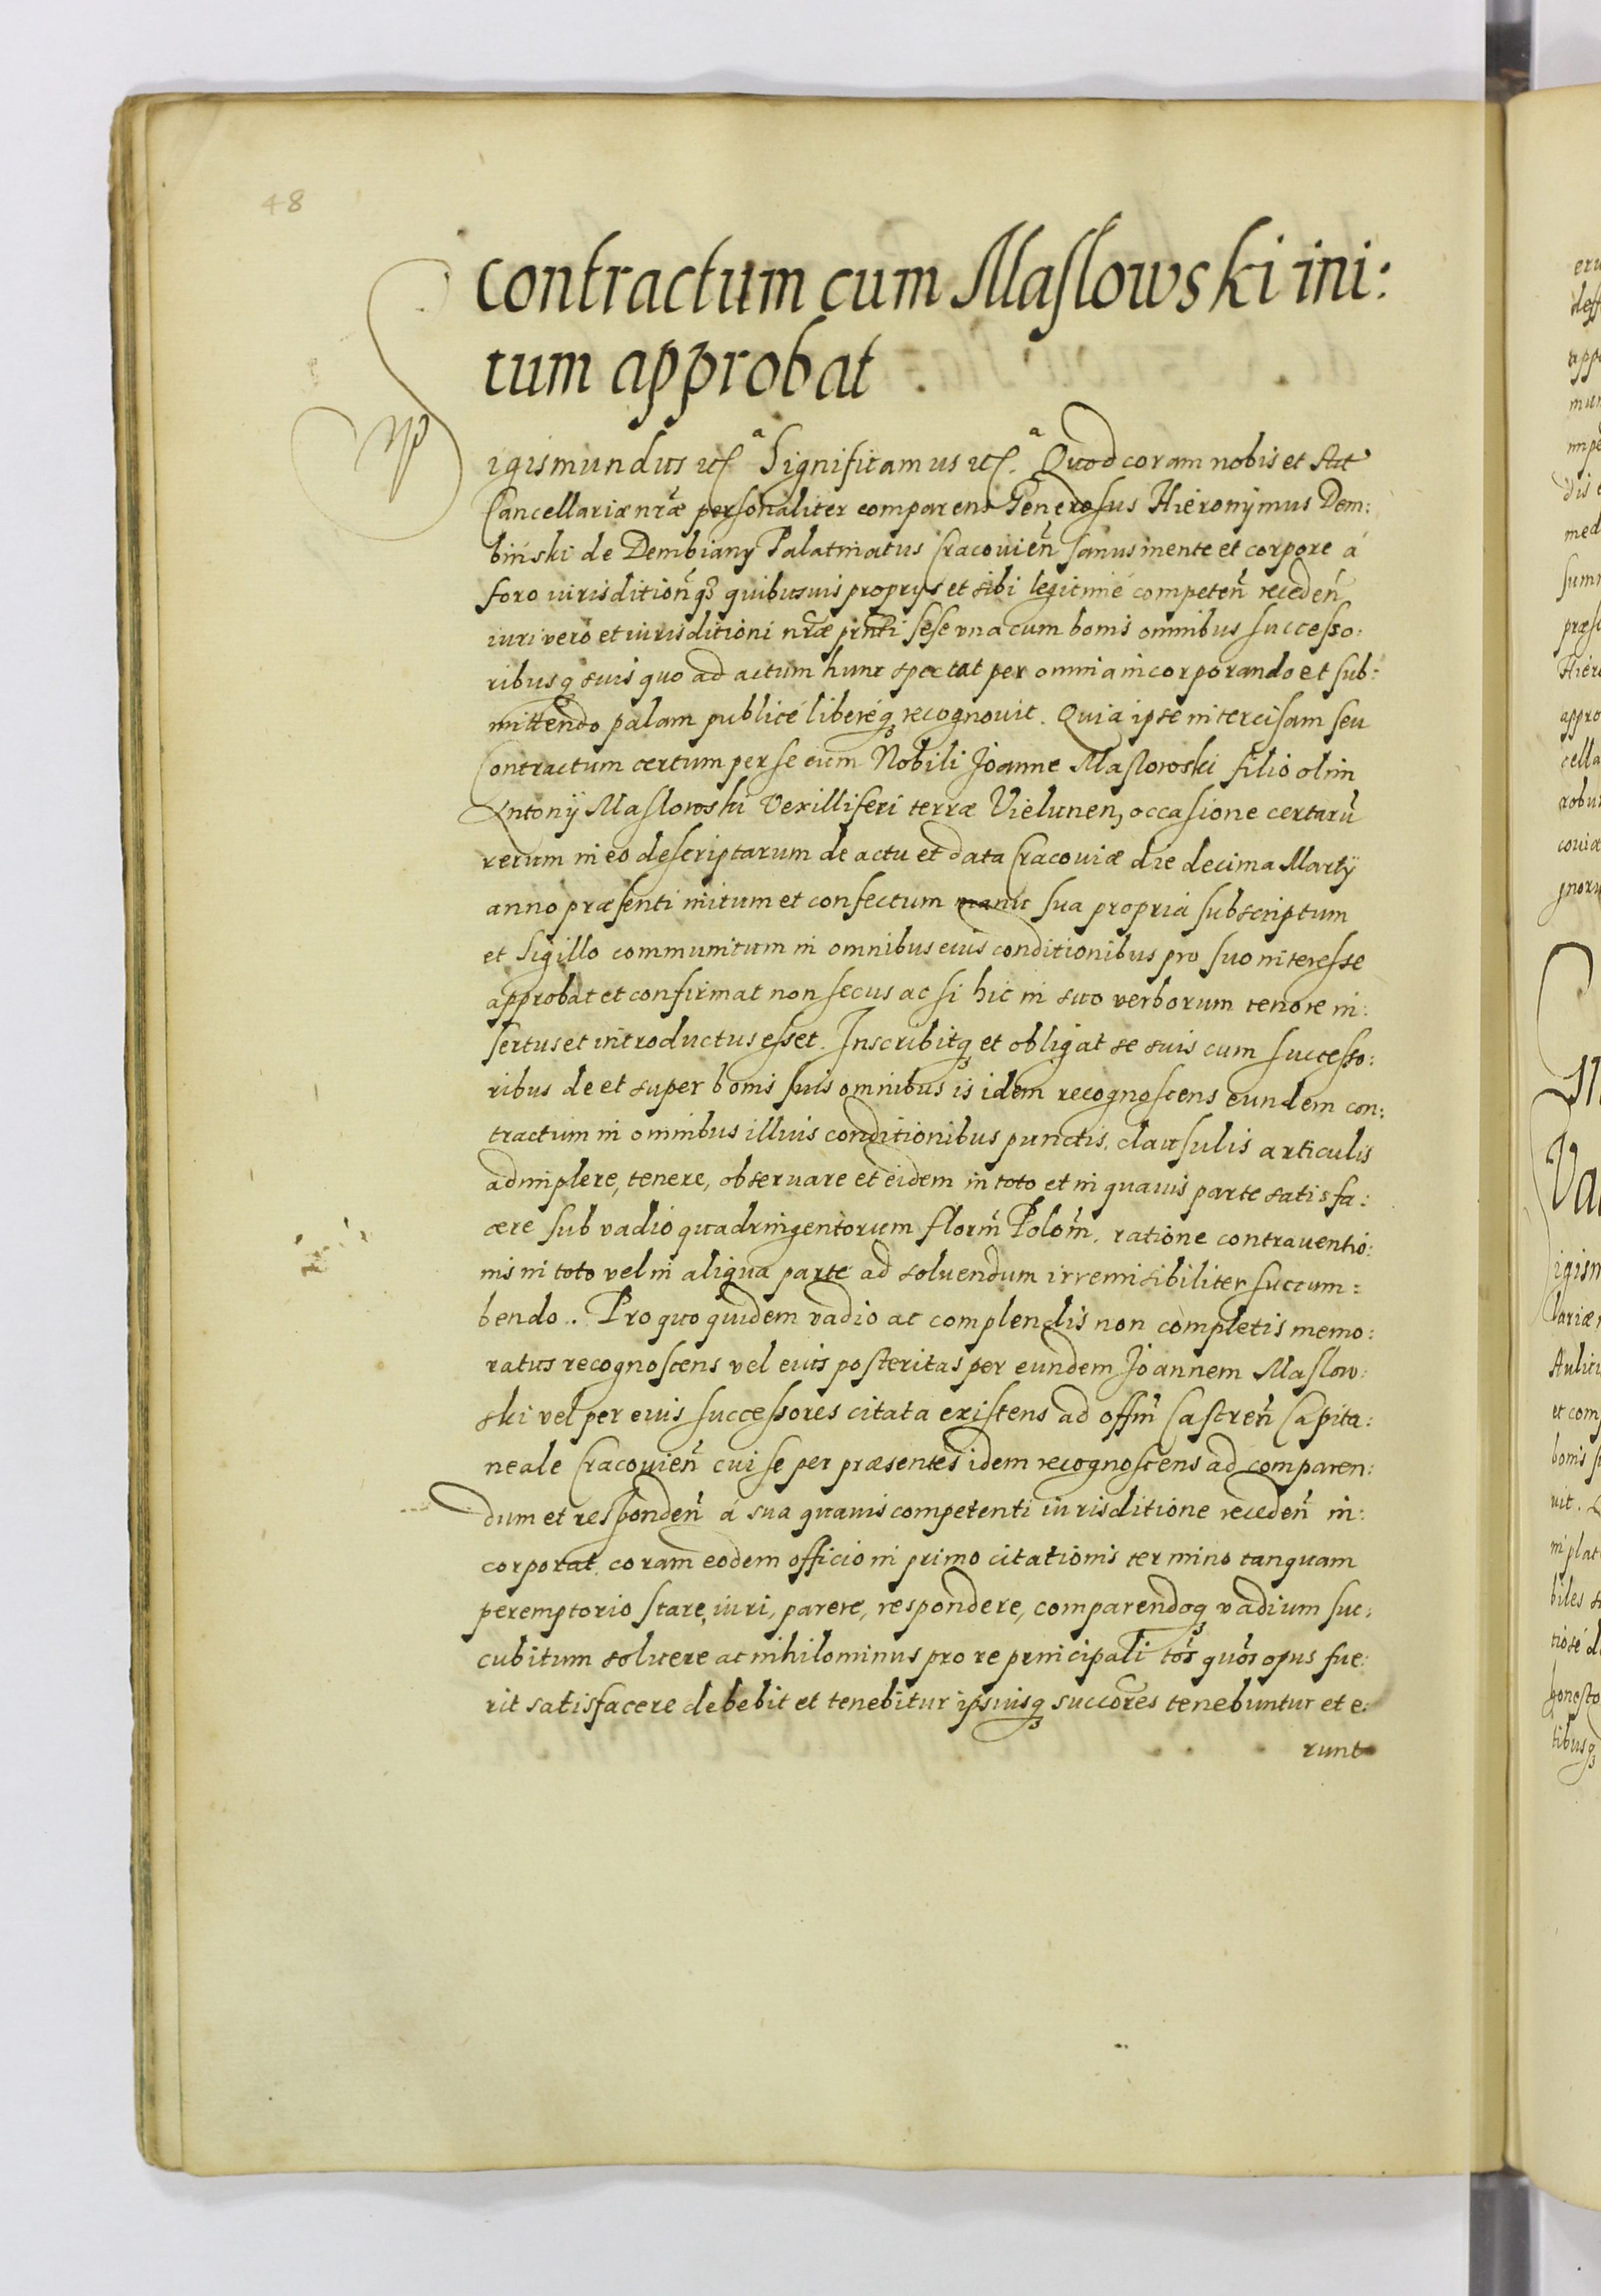 48
contractum cum Maslowski ini:
tum approbat
Sigismundus etc̃ᵃ Significamus etc̃ᵃ. Quod coram nobis et Act
Cancellariæ nr̃æ personaliter comparens Generosus Hieronymus Dem:
biński de Dembiany Palatinatus Cracouien̄ sanus mente et corpore á
foro iurisdition̄q3 quibusuis proprys et sibi legitimé competen̄ receden̄
iuri vero et iurisditioni nr̃æ prñti sese vna cum bonis omnibus successo:
ribusq3 suis quo ad actum hunc spectat per omnia incorporando et sub:
mittendo palam publicé liberéq3 recognouit. Quia ipse intercisam seu
Contractum certum per se cum Nobili Joanne Maslowski filio olim
Antonÿ Maslowski Vexilliferi terræ Vielunen, occasione certarū
rerum in eo descriptarum de actu et data Cracouiæ die decima Martÿ
anno præsenti initum et confectum manu sua propria subscriptum
et Sigillo communitum in omnibus eius conditionibus pro suo interesse
approbat et confirmat non secus ac si hic in suo verborum tenore in:
sertus et introductus esset. Inscribitq3 et obligat se suis cum successo:
ribus de et super bonis suis omnibus is idem recognoscens eundem con:
tractum in omnibus illius conditionibus punctis, clausulis articulis
adimplere, tenere, obseruare et eidem in toto et in quauis parte satisfa:
cere sub vadio quadringentorum florm̄ Polom̄. ratione contrauentio:
nis in toto vel in aliqua parte ad soluendum irremisibiliter succum:
bendo.. Pro quo quidem vadio ac complendis non completis memo:
ratus recognoscens vel eius posteritas per eundem Joannem Maslow:
ski vel per eius successores citata existens ad offm̄ Castren̄ Capita:
neale Cracouien̄ cui se per præsentes idem recognoscens ad comparen:
dum et responden̄ á sua quauis competenti iurisditione receden̄ in:
corporat, coram eodem officio in primo citationis termino tanquam
peremptorio stare, iuri, parere, respondere, comparendoq3 vadium suc:
cubitum soluere ac nihilominus pro re principali tos̄ quos̄ opus fue:
rit satisfacere debebit et tenebitur ipsiusq3 succores tenebuntur et e:
runt